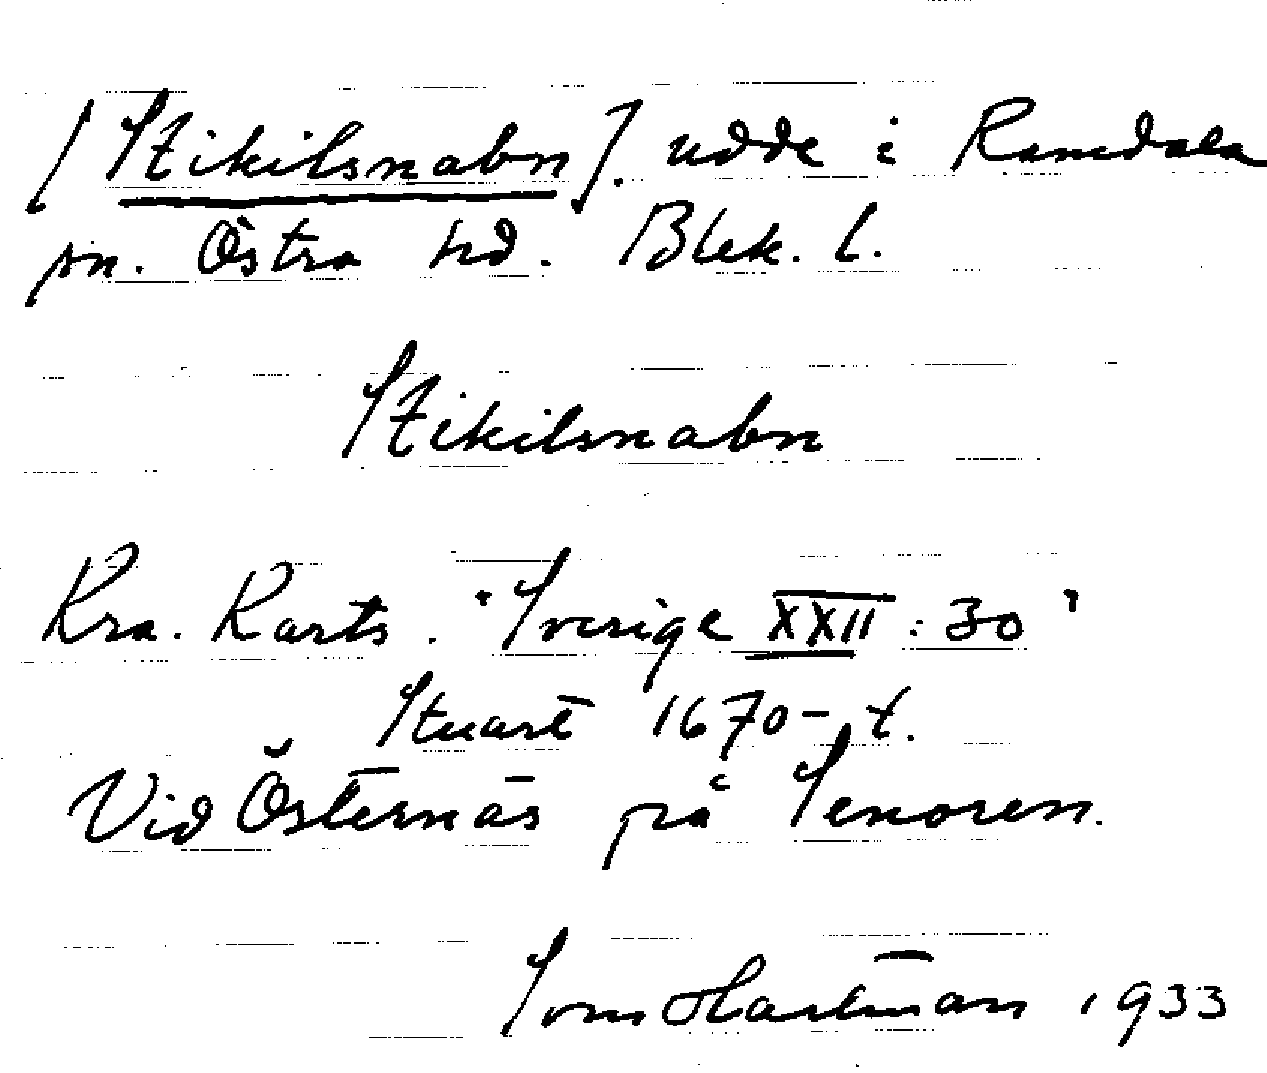 [Stikilsnabn]. udde i Ramdala
sn. Östra hd. Blek. l.
Stikilsnabn
Kra. Karts. "Sverige XXII: 30"
Stuart 1670-t.
Vid Östernäs på Senoren.
Sven Hartman 1933